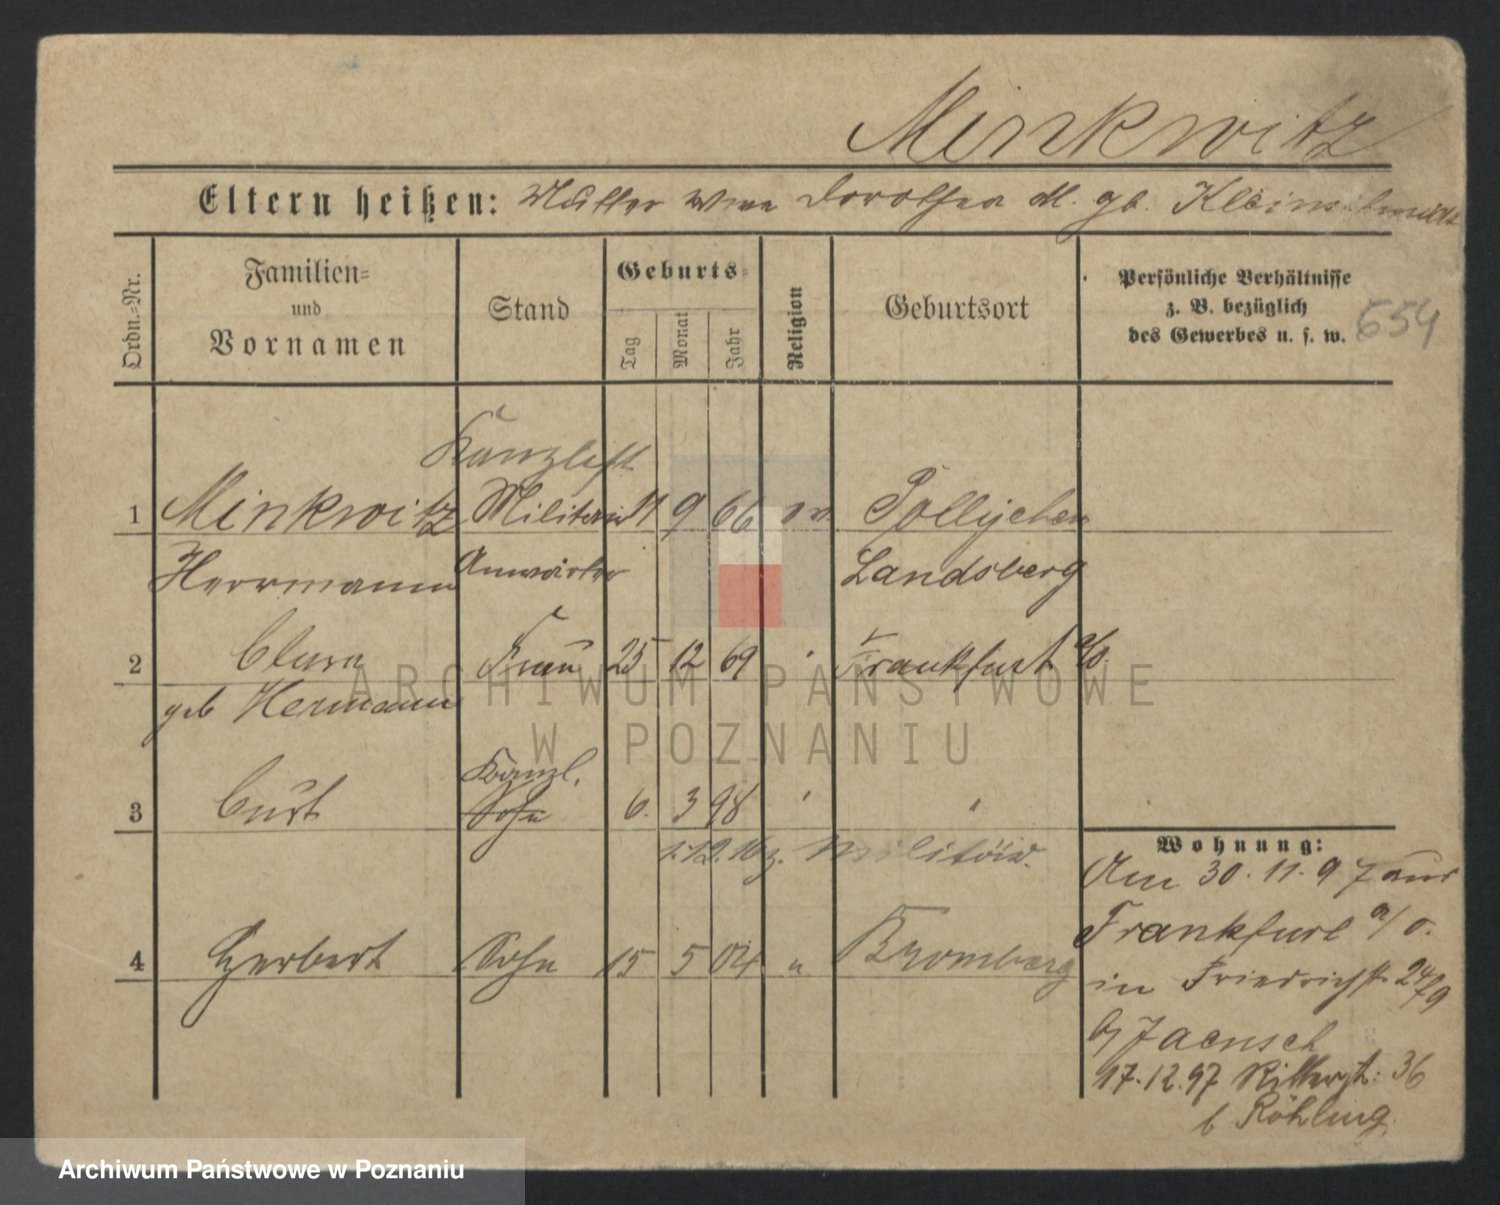 Minkwitz
Eltern heißen: Mutter Wwe Dorothea M. gb. Kleinschmidt
Ordn.-Nr.
Familien-
und
Vornamen
Stand
Geburts-
Tag
Monat
Jahr
Religion
Geburtsort
Persönliche Verhältnisse
z. B. bezüglich
des Gewerbes u. s. w.
654
Kanzlist
1 Minkwitz Militär 11 9 66 ev. Pollychen
Herrmann Anwärter Landsberg
2 Clara Frau 25 12 69 " Frankfurt a/O
geb Hermann
Kanzl.
3 Curt Sohn 6. 3 98 " "
1.12.16 z. Militär.
4 Herbert Sohn 15 5 04 " Bromberg
Wohnung:
Am 30.11.97 aus
Frankfurt a/O.
in Friedrichst. 24/9
b/ Jaensch
17.12.97 Ritterst: 36
b Röhling.
ARCHIWUM PAŃSTWOWE
W POZNANIU
Archiwum Państwowe w Poznaniu